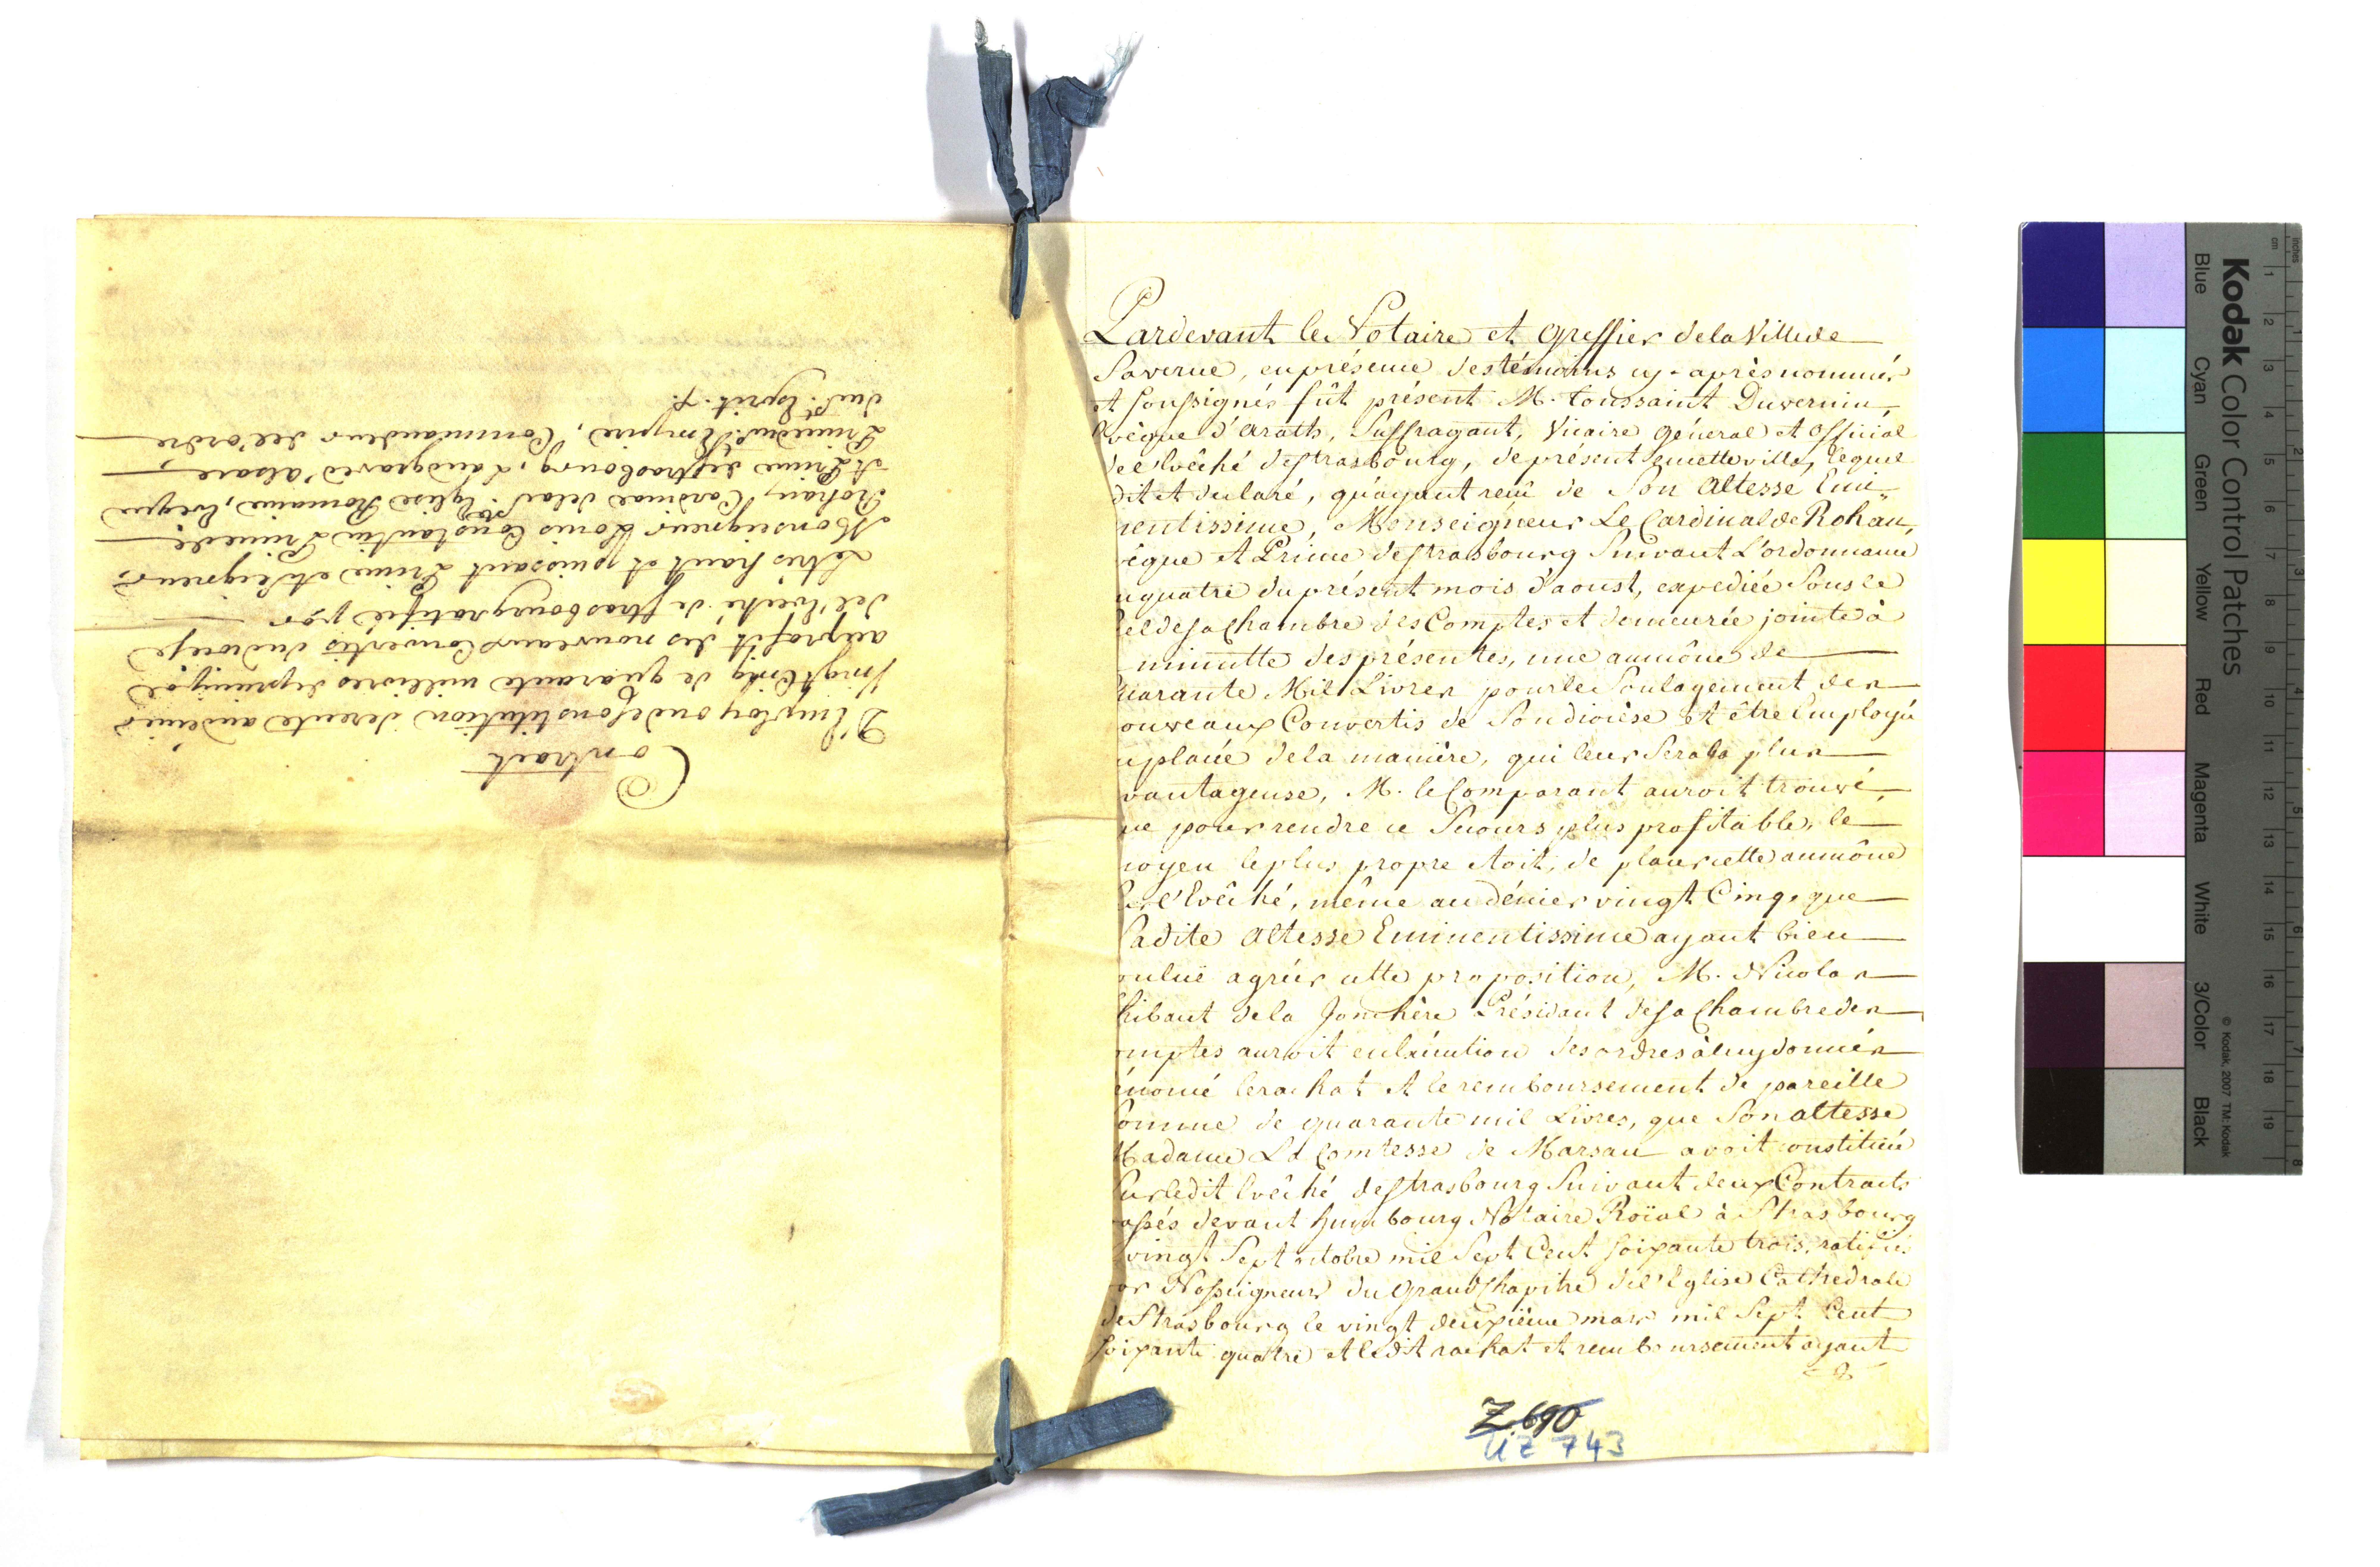 Contract
D'Employ ou de Constitution de rente au denier
Vingt Cinq de quarante mil livres de principal
au profit des nouveaux Convertis du diocese
de l'Eveché de strasbourg ratifié par
Le très haut et puissant Prince et Seigneur
Monseigneur Louis Constantin Prince de
Rohan, Cardinal de la Ste. Eglise Romaine, Eveque
et Prince de strasbourg, Landgrave d'alsace,
Prince du St. Empire, Commandeur de l'ordre
du St. Esprit.
Pardevant le Notaire et Greffier de la Ville de
Saverne, en présence des témoins cy-après nommés
et soussignés fût présent M. toussaint Duvernin,
Evêque d'arath, Suffragant, Vicaire général et official
de l'Evêché de strasbourg, de présent en cette ville, lequel
dit et declaré, qu'ayant reçû de Son Altesse Emi-
nentissime, Monseigneur Le Cardinal de Rohan,
vêque et Prince de strasbourg Suivant L'ordonnance
u quatre du présent mois d'aoust, expediée Sous le
cel de sa Chambre des Comptes et demeurée jointe à
minutte des présentes, une aumône de
uarante Mil Livres pour le Soulagement des
ouveaux Convertis de Son diocèse et être Employée
u placée de la manière, qui leur Sera la plus
vantageuse, M. le Comparant auroit trouvé,
ue pour rendre ce Secours plus profitable, le
oyen le plus propre étoit, de placer cette aumône
Sur l'Evêché, même au dénier vingt Cinq, que
Sadite Altesse Eminentissime ayant bien
oulu agréer cette proposition, M. Nicolas
hibaut de la Jonchère Présidant de sa Chambre des
omptes auroit en éxécution des ordres à luy donnés
énoncé le rachat et le remboursement de pareille
Somme de quarante mil Livres, que Son altesse
Madame La Comtesse de Marsan avoit constituée
Sur ledit Evêché de strasbourg Suivant deux Contracts
assés devant Humbourg Notaire Roïal à Strasbourg
vingt Sept octobre mil Sept Cent soixante trois, ratifiés
ar Nosseigneurs du Grand Chapitre de l'Eglise Cathedrale
de Strasbourg le vingt deuxième mars mil Sept Cent
soixante quatre et ledit rachat et remboursement ayant
Z. 690
UZ 743
Kodak Color Control Patches
© Kodak, 2007 TM: Kodak
Blue Cyan Green Yellow Red Magenta White 3/Color Black
inches 1 2 3 4 5 6 7 8
cm 1 2 3 4 5 6 7 8 9 10 11 12 13 14 15 16 17 18 19